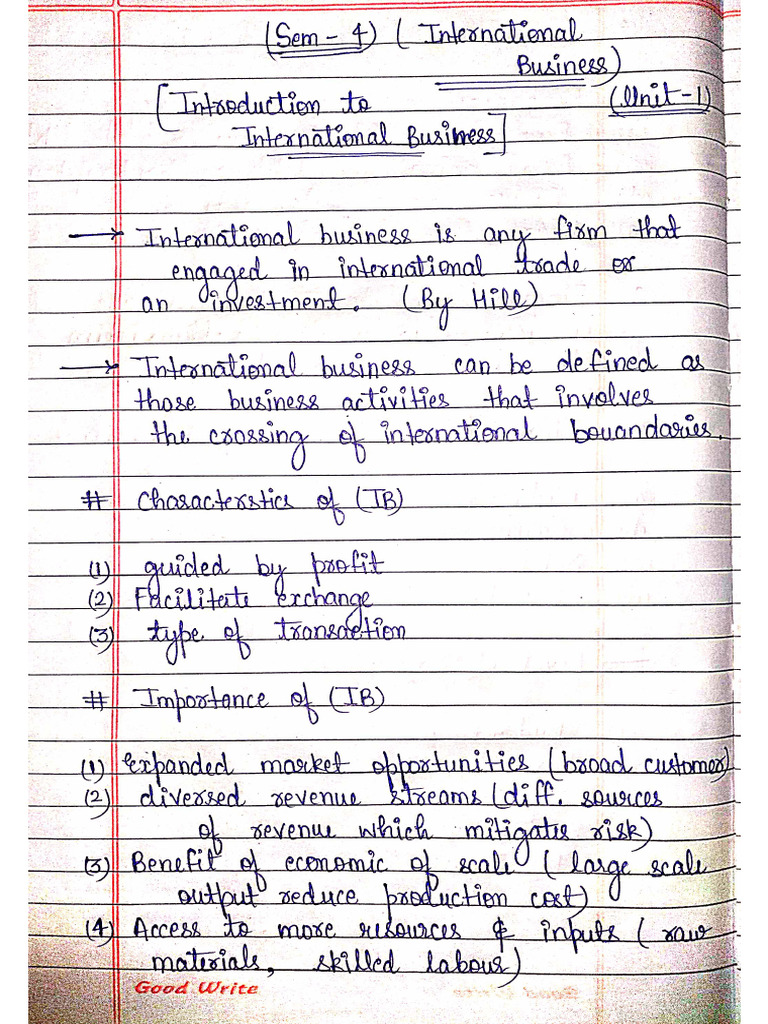 (Sem - 4) (International
Business)
[Introduction to (Unit-1)
International Business]
→ International business is any firm that
engaged in international trade or
an investment. (By Hill)
→ International business can be defined as
those business activities that involves
the crossing of international bouandaries.
# Characterstics of (IB)
(1) guided by profit
(2) Facilitate exchange
(3) type of transaction
# Importance of (IB)
(1) expanded market opportunities (broad customer)
(2) diversed revenue streams (diff. sources
of revenue which mitigates risk)
(3) Benefit of economic of scale (large scale
output reduce production cost)
(4) Access to more resources & inputs (raw
materials, skilled labour)
Good Write